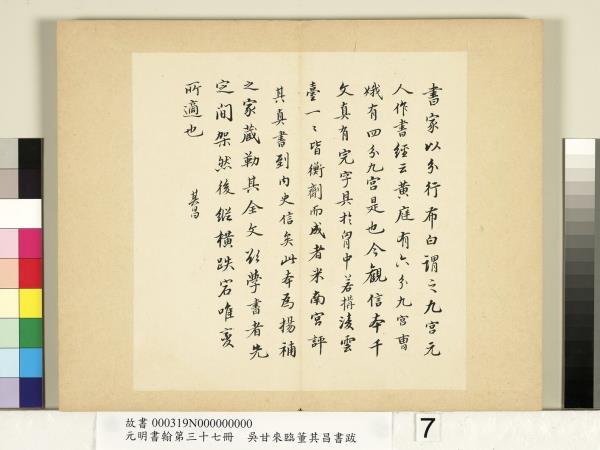 書家以分行布白謂之九宮元
人作書經云黃庭有六分九宮曹
娥有四分九宮是也今觀信本千
文真有完字具於胷中若構凌雲
臺一〻皆衡劑而成者米南宮評
其真書到內史信矣此本為楊補
之家藏勒其全文欲學書者先
定間架然後縱橫跌宕唯變
所適也
其昌
故書 000319N000000000
元明書翰第三十七冊 吳甘來臨董其昌書跋
7